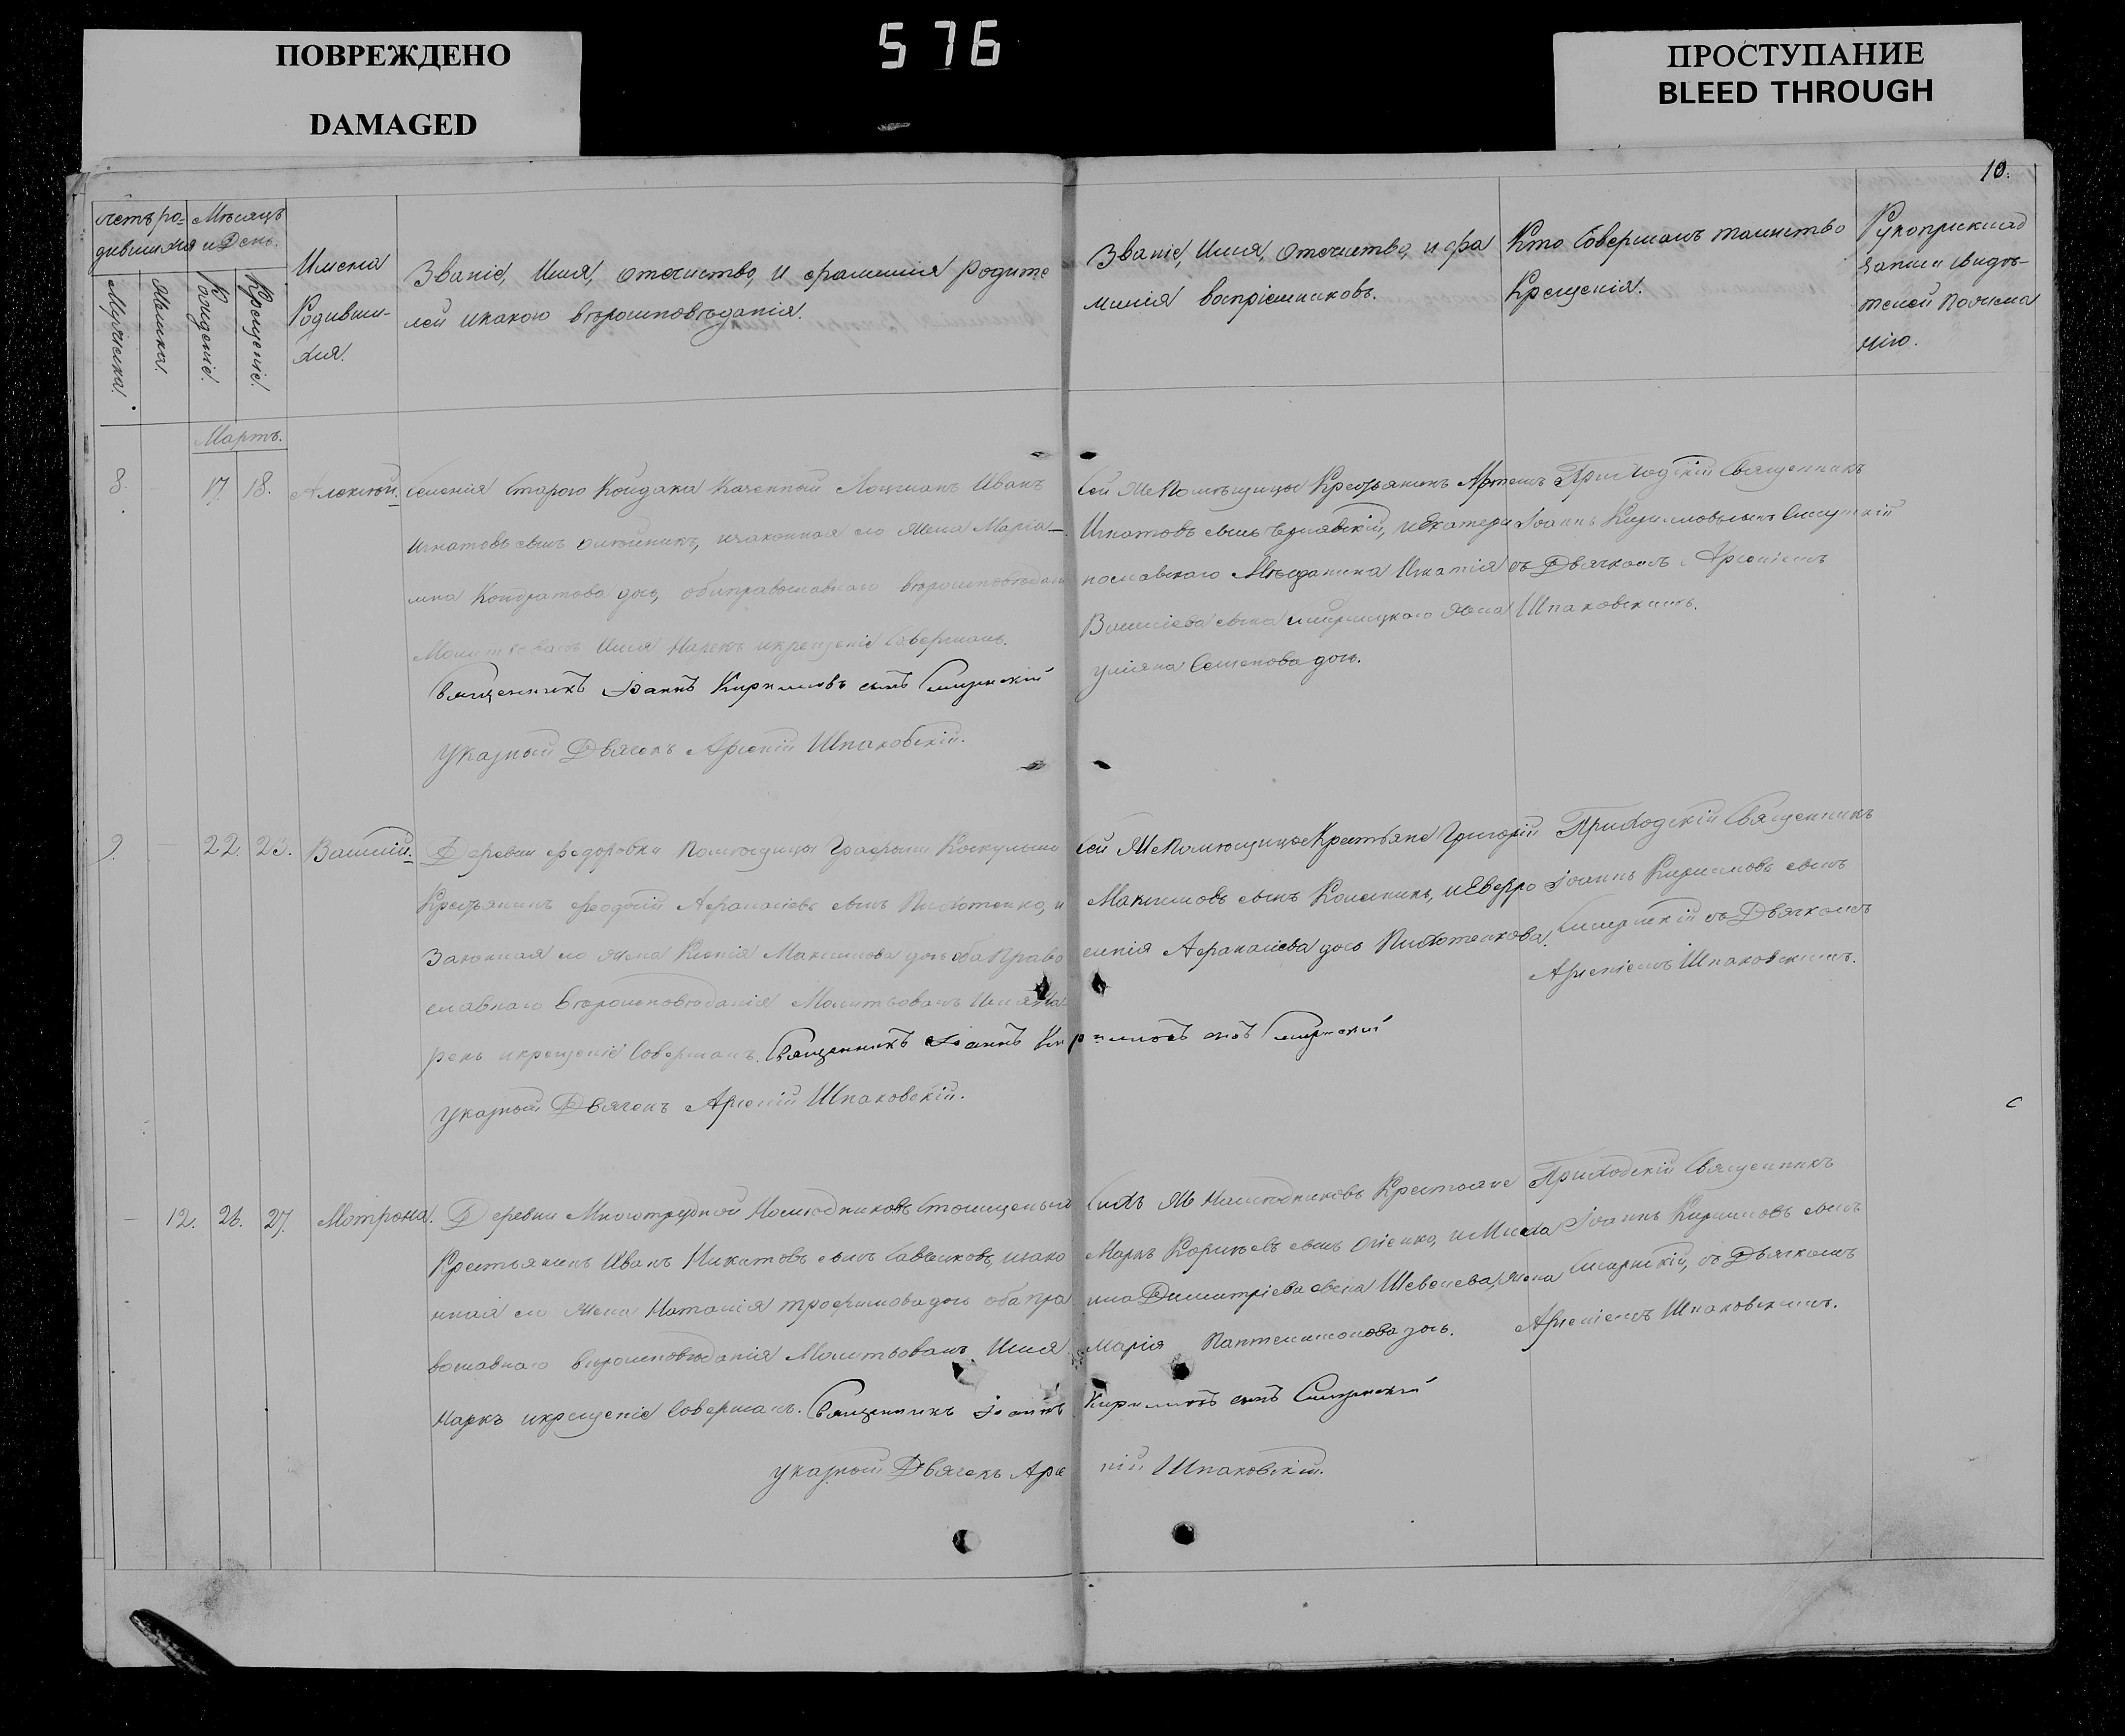 ПОВРЕЖДЕНО
DAMAGED
576
ПРОСТУПАНИЕ
BLEED THROUGH
10.
Счетъ ро-
дившихся
Мѣсяцъ
и День.
Мужеска.
Женска.
Рожденіе.
Крещеніе.
Имена
Родивши-
хся.
Званіе, Имя, отечиство, и фамилія родите
лей икакого вѣроисповѣданія.
Званіе, Имя, отечиство, и фа
милія воспріемниковъ.
Кто Совершалъ таинство
Крещенія.
Рукоприклад
записи свидѣ-
телей по
нію.
Мартъ.
8. 17. 18. Алексѣй.
селенія Старого Койдака Казенный Лоцманъ Иванъ
Игнатовъ сынъ Олѣйникъ, изаконная его жена Маріа-
мна Кондратова дочь, оба православнаго вѣроисповѣдані
Молитвовалъ Имя Нарекъ икрещеніе Совершалъ.
Священникъ Іоаннъ Кириловъ сынъ
Указный Дьячекъ Арсеній Шпаковскій.
сей же Помѣщицы Крестьянинъ Артемъ
Игнатовъ сынъ Чернявскій, и Екатери
нославского Мѣщанина Игнатія
Василіева сына жена
уліяна Семенова дочь.
Приходскій Священникъ
Іоаннъ Кириловъ сынъ
съ Дьячкомъ Арсеніемъ
Шпаковскимъ.
9. 22. 23. Василій.
Деревни Федоровки Помѣщицы Графини
Крестьянинъ Феодосій Афанасіевъ сынъ Пихотенко, и
Законная его жена Ксенія Максимова дочь оба Право
славнаго вѣроисповѣданія Молитвовалъ Имя На
рекъ икрещеніе Совершалъ. Священникъ Іоаннъ Кириловъ сынъ
Указный Дьячекъ Арсеній Шпаковскій.
сей же Помѣщицы Крестьяне Григорій
Максимовъ сынъ и Евфро
синія Афанасіева дочь Пихотенкова.
Приходскій Священникъ
Іоаннъ Кириловъ сынъ
съ Дьячкомъ
Арсеніемъ Шпаковскимъ.
12. 26. 27. Матрона.
Деревни Многотрудной Наслѣдниковъ
Крестьянинъ Иванъ Никитовъ сынъ изако
нная его жена Наталія трофимова дочь оба пра
вославнаго вѣроисповѣданія Молитвовалъ Имя
Нарекъ икрещеніе Совершалъ. Священникъ Іоаннъ Кириловъ сынъ
указной Дьячекъ Арсеній Шпаковскій.
сихъ же Наслѣдниковъ Крестьяне
Маркъ сынъ и Миха
ила Димитріева сына жена
Марія Пантелимонова дочь.
Приходскій Священникъ
Іоаннъ Кириловъ сынъ
съ Дьячкомъ
Арсеніемъ Шпаковскимъ.